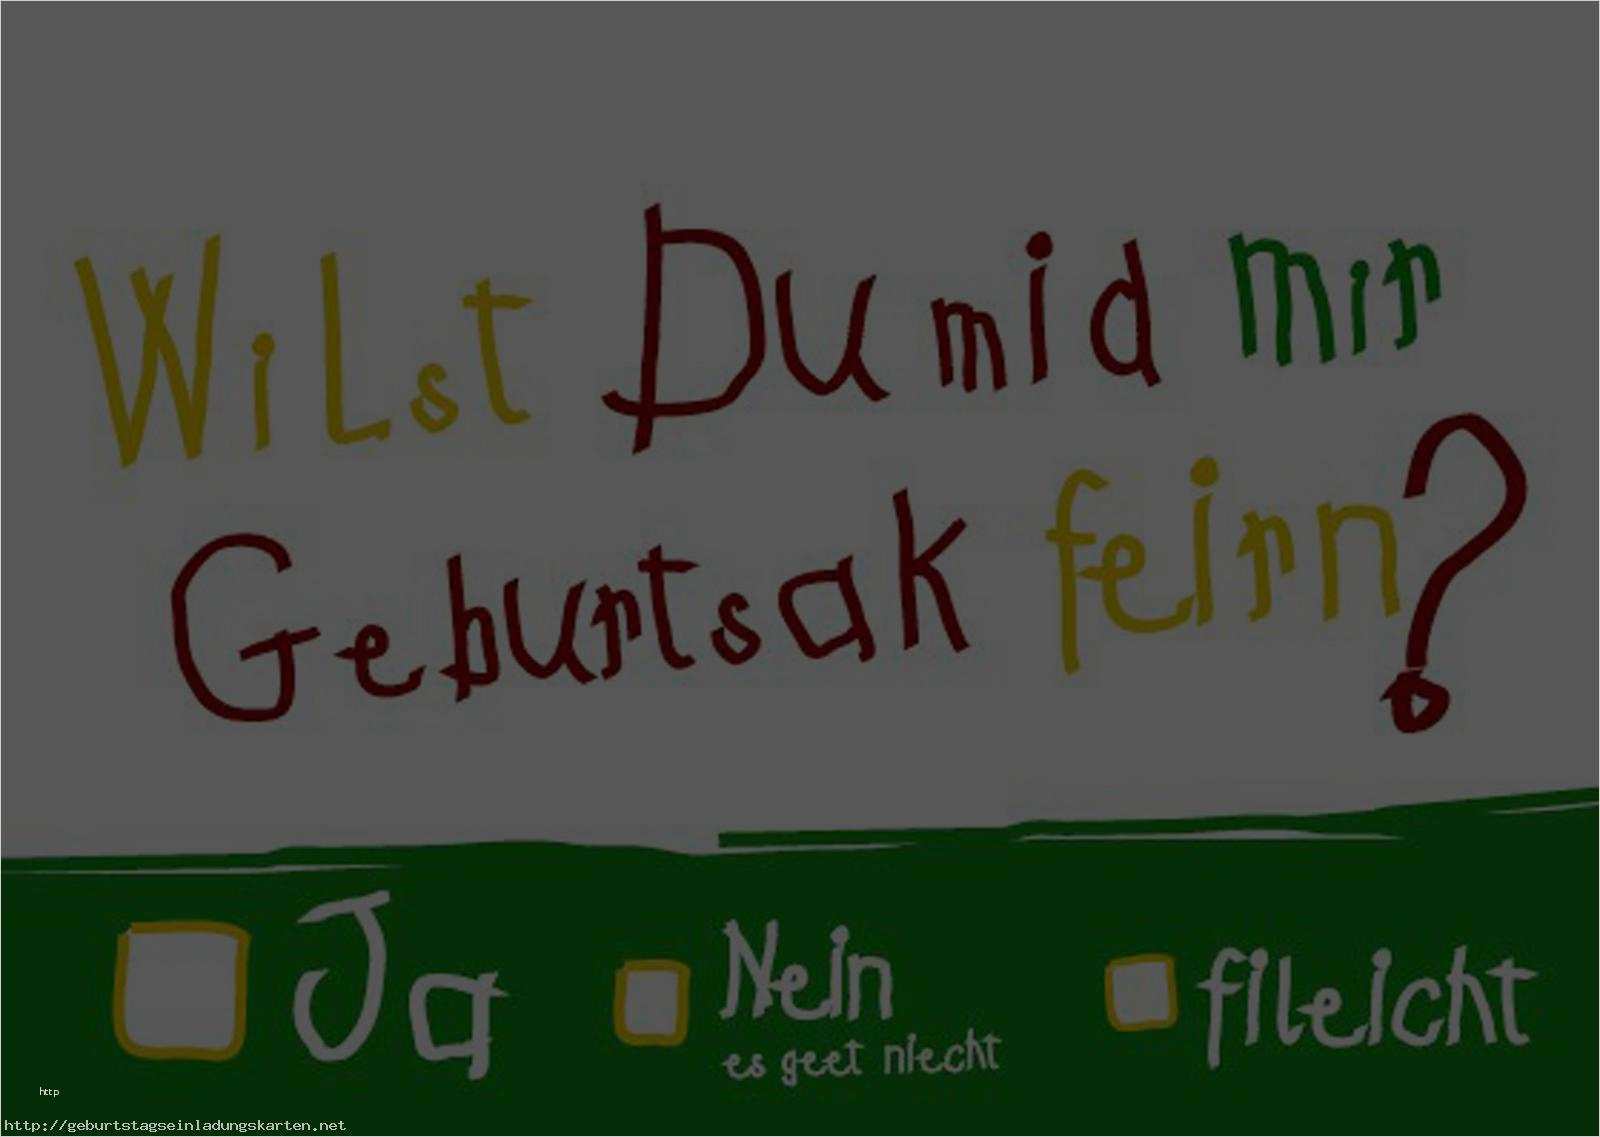 WiLst Du mid mir
Geburtsak feirn?
Ja
Nein
es geet niecht
fileicht
http
http://geburtstagseinladungskarten.net